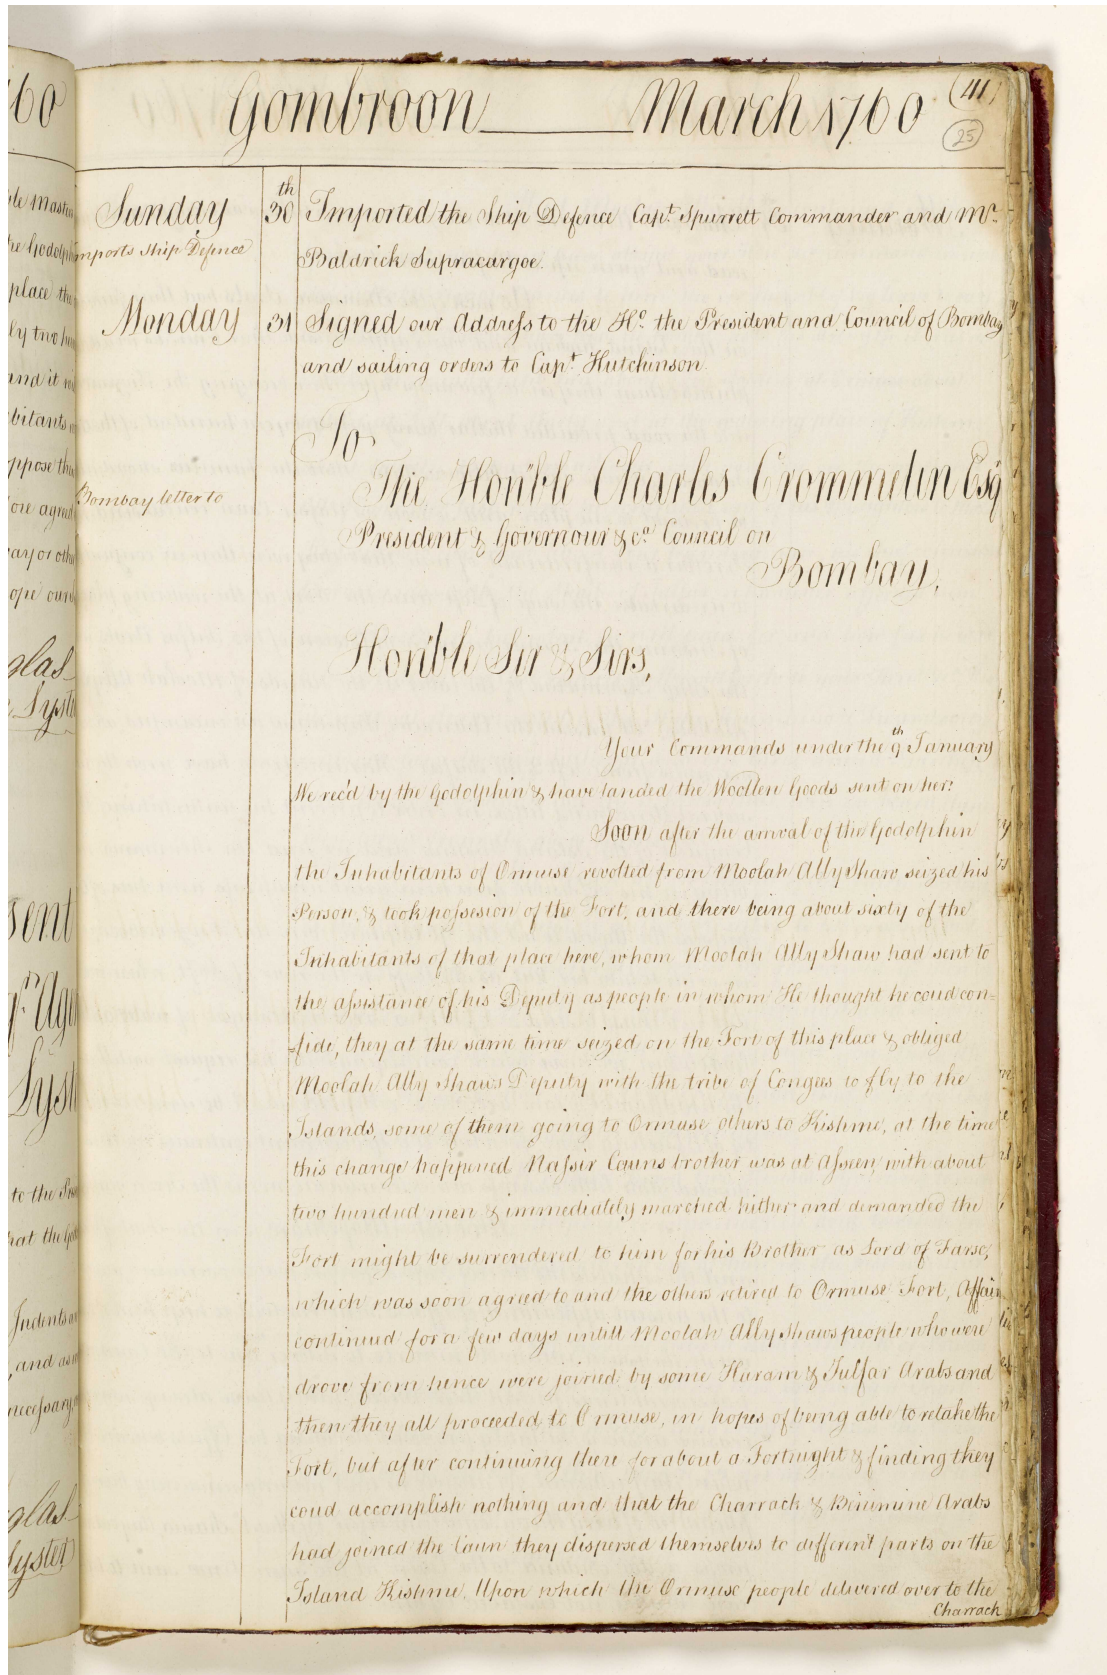 Gombroon March 1760 (41)
25
Sunday 30th Imported the Ship Defence Capt. Spurrett Commander and Mr.
Imports Ship Defence
Baldrick Supracargoe.
Monday 31 Signed our Address to the Ho. the President and Council of Bombay
and sailing orders to Capt. Hutchinson.
To
The Hon'ble Charles Crommelin Esq
Bombay letter to
President & Governour &ca. Council on
Bombay,
Hon'ble Sir & Sirs,
Your Commands under the 9th January
We rec'd by the Godolphin & have landed the Woollen Goods sent on her:
Soon after the arrival of the Godolphin
the Inhabitants of Ormuse revolted from Moolah Ally Shaw seized his
Person, & took possesion of the Fort, and there being about sixty of the
Inhabitants of that place here, whom Moolah Ally Shaw had sent to
the assistance of his Deputy as people in whom He thought he coud con=
=fide, they at the same time seized on the Fort of this place & obliged
Moolah Ally Shaws Deputy with the tribe of Congees to fly to the
Islands, some of them going to Ormuse others to Kishme, at the time
this change happened Nassir Cauns brother was at Asseen, with about
two hundred men & immediately marched hither and demanded the
Fort might be surrendered to him for his Brother as Lord of Farse,
which was soon agreed to and the others retired to Ormuse Fort, Affairs
continued for a few days untill Moolah Ally Shaws people who were
drove from hence were joined by some Huram & Julfar Arabs and
then they all proceeded to Ormuse, in hopes of being able to retake the
Fort, but after continuing there for about a Fortnight & finding they
coud accomplish nothing and that the Charrack & Benimine Arabs
had joined the Caun they dispersed themselves to different parts on the
Island Kishme, Upon which the Ormuse people delivered over to the
Charrack